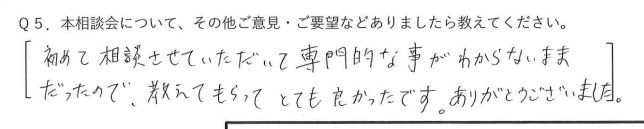 Q5. 本相談会について、その他ご意見・ご要望などありましたら教えてください。
初めて相談させていただいて専門的な事がわからないまま
だったので、教えてもらってとても良かったです。ありがとうございました。